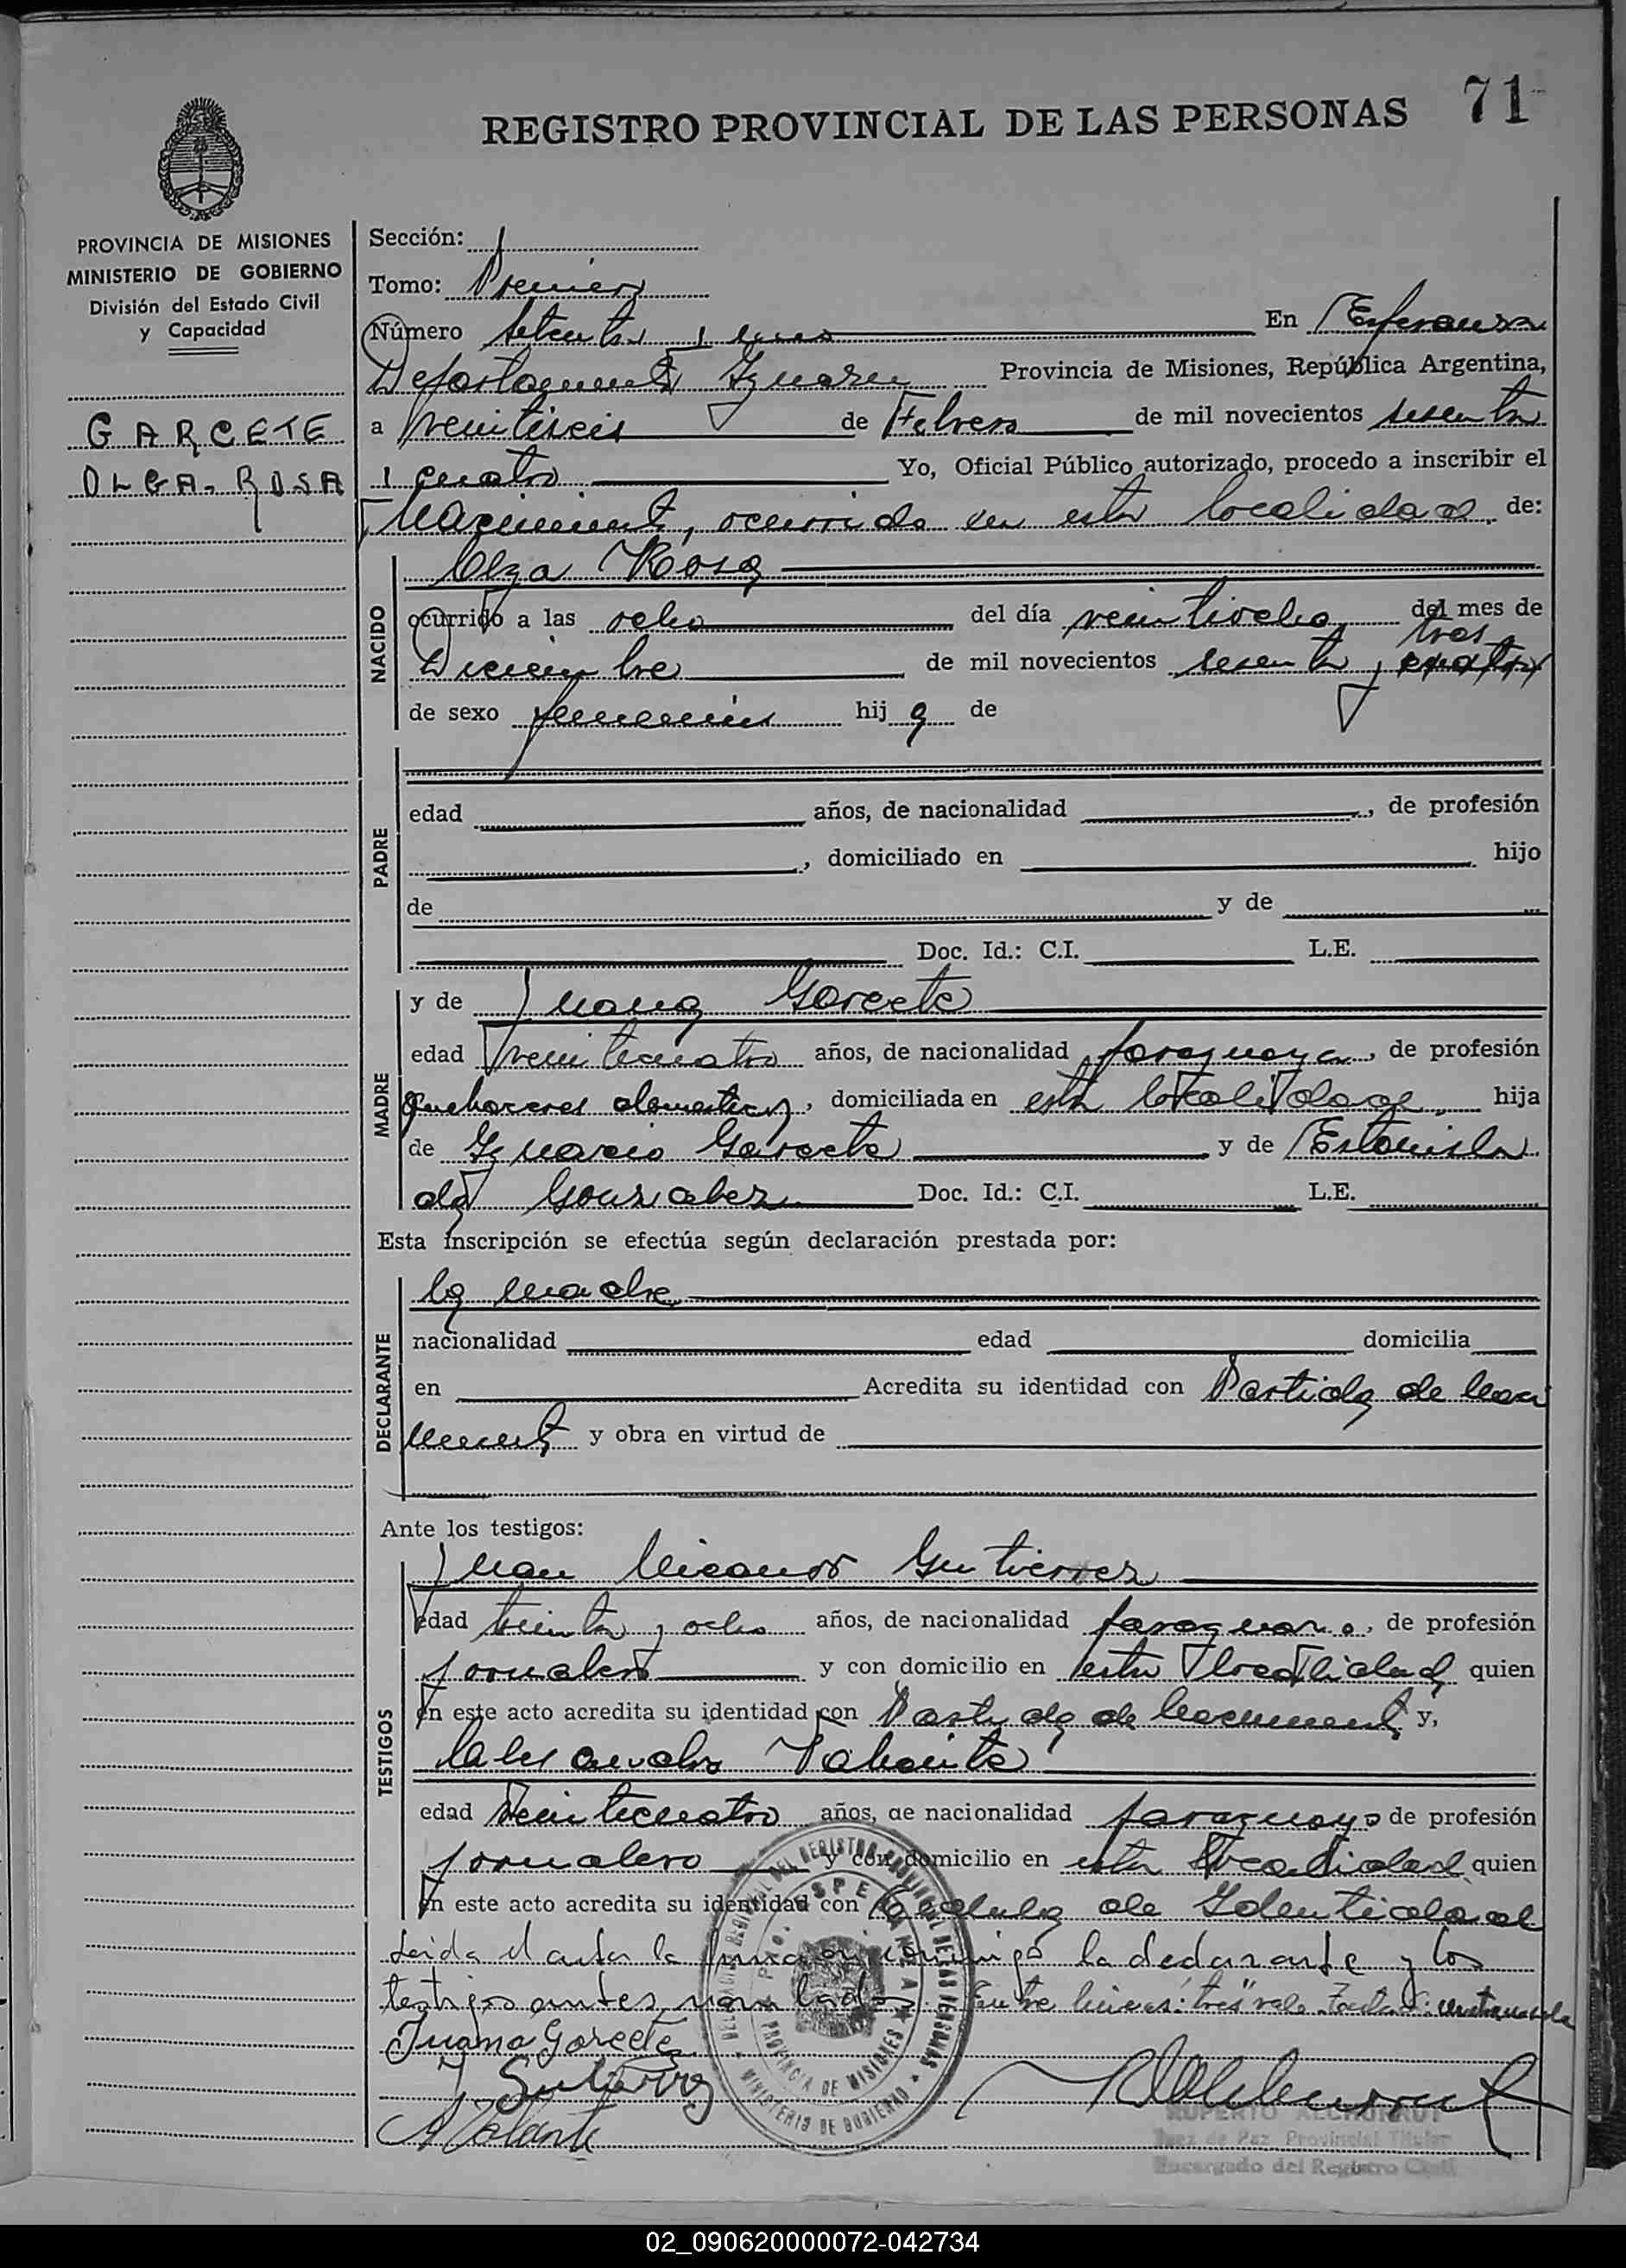 71
REGISTRO PROVINCIAL DE LAS PERSONAS
PROVINCIA DE MISIONES
MINISTERIO DE GOBIERNO
División del Estado Civil
y Capacidad
GARCETE
OLGA-ROSA
Sección:
Tomo: Primero
Número setenta y uno En Esperanza
Departamento Iguazu Provincia de Misiones, República Argentina,
a veintiseis de Febrero de mil novecientos sesenta
y cuatro Yo, Oficial Público autorizado, procedo a inscribir el
Nacimiento, ocurrido en esta localidad de:
NACIDO
Olga Rosa
ocurrido a las ocho del día veintiocho del mes de
tres
Diciembre de mil novecientos sesenta y cuatro
de sexo femenino hij a de
PADRE
edad años, de nacionalidad , de profesión
, domiciliado en hijo
de y de
Doc. Id.: C.I. L.E.
MADRE
y de Juana Garcete
edad veinticuatro años, de nacionalidad paraguaya, de profesión
quehaceres domesticos, domiciliada en esta localidad, hija
de Ignacio Garcete y de Estanisla
da Gonzalez Doc. Id.: C.I. L.E.
Esta inscripción se efectúa según declaración prestada por:
DECLARANTE
la madre
nacionalidad edad domicilia
en Acredita su identidad con Partida de Naci
miento y obra en virtud de
Ante los testigos:
TESTIGOS
Juan Nicanor Gutierrez
edad treinta y ocho años, de nacionalidad paraguayo, de profesión
jornalero y con domicilio en esta localidad, quien
en este acto acredita su identidad con Partida de Nacimiento y,
años, de nacionalidad paraguayo de profesión
edad veinticuatro
jornalero y con domicilio en esta localidad quien
en este acto acredita su identidad con Cedula de Identidad
Leida el acta la firman conmigo la declarante y los
testigos antes nombrados. Entre lineas: "tres" vale. Testado: cuatro no vale
Juana Garcete
J Gutierrez
RUPERTO ALCHURRUT
Juez de Paz Provincial Titular
Encargado del Registro Civil
PROVINCIA DE MISIONES
MINISTERIO DE GOBIERNO
02_090620000072-042734